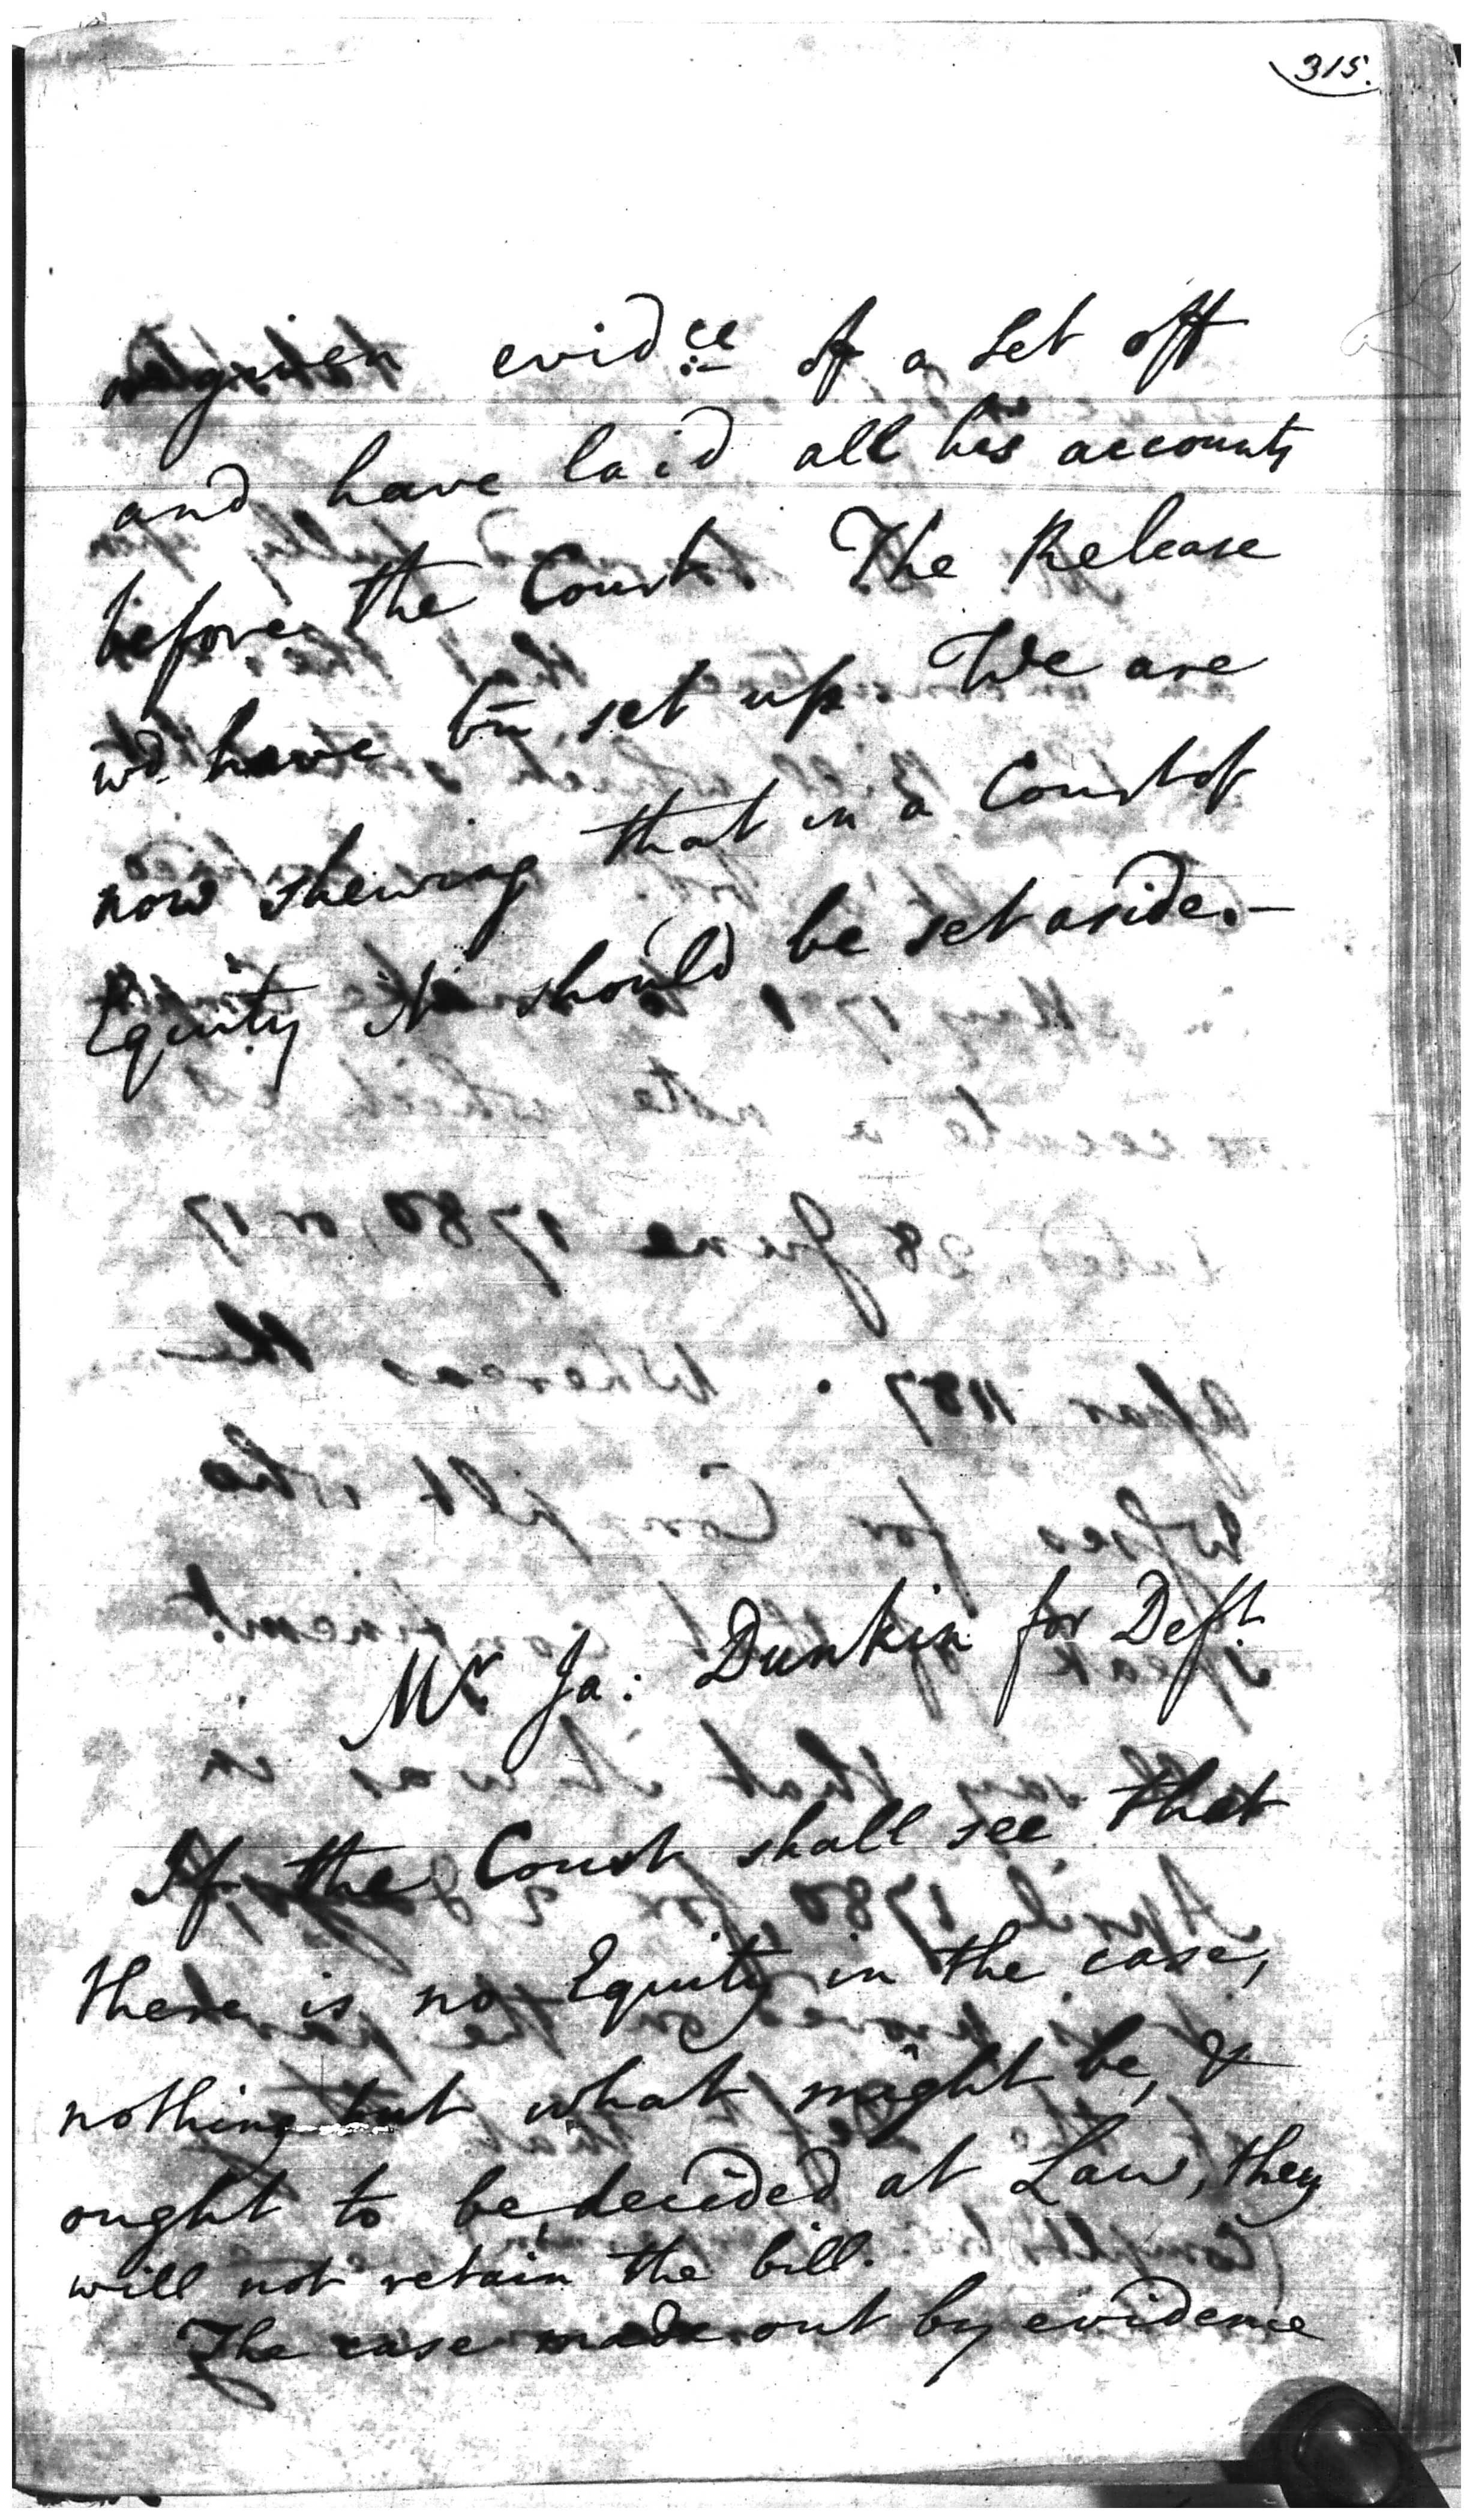 315.
given evid:ce of a Set off
and have laid all his accounts
before the Court. The Release
wd. have bn set up. We are
now shewing that in a Court of
Equity it should be set aside.—
Mr. Ja: Dunkin for Deft.
If the Court shall see that
there is no Equity in the case,
nothing but what might be, &
ought to be decided at Law, they
will not retain the bill.
The case made out by evidence